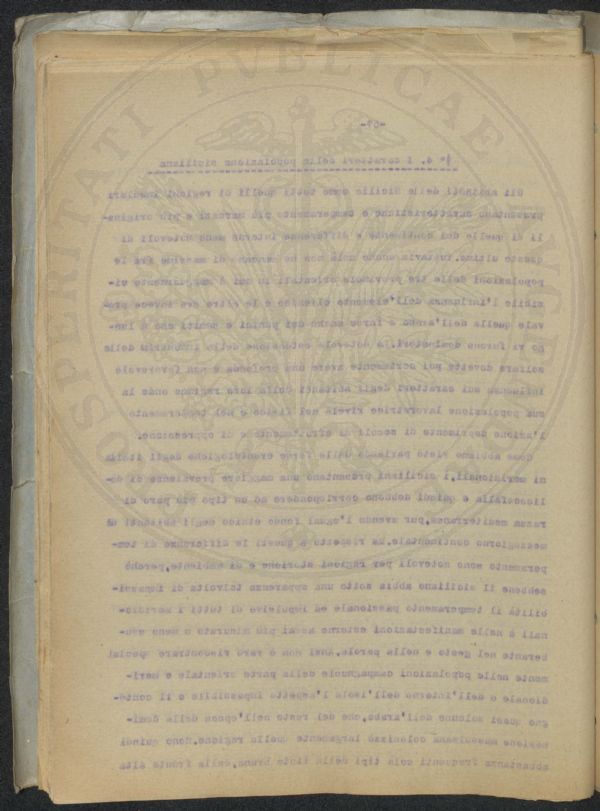 -67-
4° 4. I caratteri della popolazione siciliana
Gli abitanti della Sicilia come tutti quelli di regioni insulari
presentano caratteristiche e temperamento più marcati e più origina-
li di quelle del continente e differenze interne meno notevoli di
queste ultime. tuttavia anche esse non ne mancano, di massime fra le
popolazioni delle tre provincie orientali in cui è maggiormente vi-
sibile l'influenza dell'elemento ellenico e le altre ove invece pre-
vale quella dell'arabo e forse anche dei punici e semiti che a lun-
go vi furono dominatori. La notevole estensione della industria dello
solfare dovette poi certamente avere una profonda e non favorevole
influenza sui caratteri degli abitanti della loro regione onde la
sua popolazione lavoratrice rivela nel fisico e nel temperamento
l'azione deprimente di secoli di sfruttamento e di oppressione.
Come abbiamo visto parlando delle forme craniologiche degli italia
ni meridionali, i siciliani presentano una maggiore prevalenza di do-
licocefalia e quindi debbono corrispondere ad un tipo più puro di
razza mediterranea, pur avendo l'egual fondo etnico degli abitanti del
mezzogiorno continentale. Ma rispetto a questi le differenze di tem-
peramento sono notevoli per ragioni storiche e di ambiente, perchè
sebbene il siciliano abbia sotto una apparenza talvolta di impassi-
bilità il temperamento passionale ed impulsivo di tutti i meridio-
nali è nelle manifestazioni esterne assai più misurato e meno esu-
berante nel gesto e nella parola. Anzi non è raro riscontrare special
mente nelle popolazioni campagnuole della parte orientale e meri-
dionale e dell'interno dell'isola l'aspetto impassibile e il conte-
gno quasi solenne dell'Arabo, che del resto nell'epoca della domi-
nazione mussulmana colonizzò largamente quelle regione. Sono quindi
abbastanza frequenti colà tipi dalla tinta bruna, dalla fronte alta
PROSPERITATI PVBLICAE